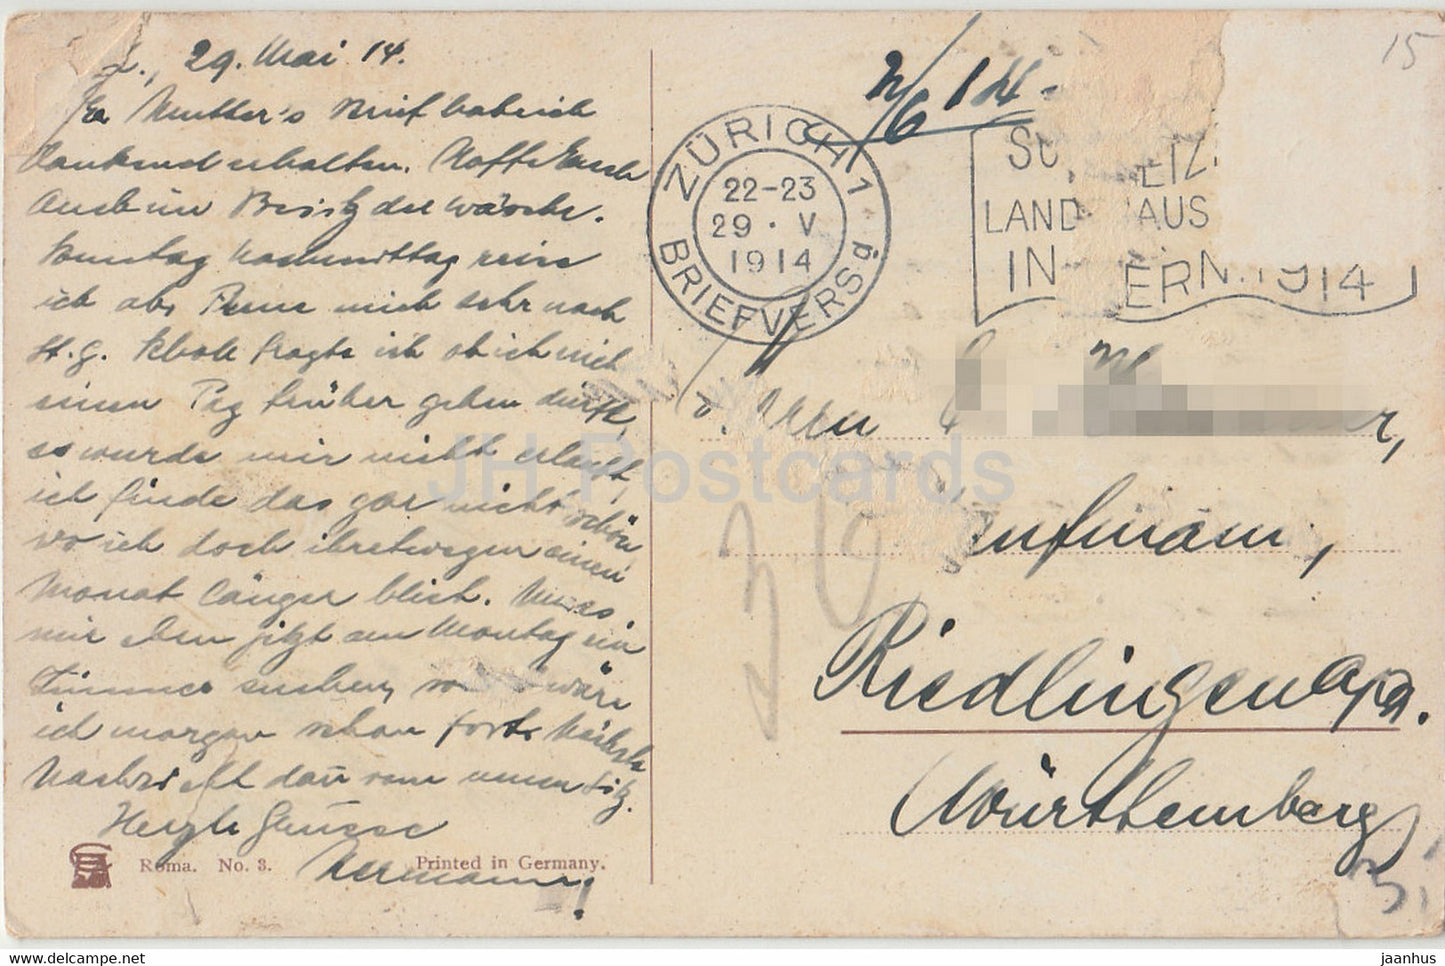 29. Mai 14.
Mutter's Brief habe ich
dankend erhalten. Hoffe Euch
Auch im Besitz der Wäsche.
Sonntag Nachmittag reise
ich ab, freue mich sehr nach
St. G. Wohl fragte ich ob ich nicht
einen Tag früher gehen dürfte,
es wurde mir nicht erlaubt,
ich finde das gar nicht schön
wo ich doch ihretwegen einen
Monat länger blieb. Muss
mir eben jetzt am Montag ein
Zimmer suchen, so wäre
ich morgen schon fort. Nächste
Nachricht dann vom neuen Sitz.
Herzle Grüsse
Hermann!
Roma. No. 3. Printed in Germany.
2/6 14.
15
ZÜRICH 1
22-23
29 · V
1914
BRIEFVERS g
LAND AUS
IN ERN. 1914
Herrn
Riedlingen a/D.
Württemberg
JH Postcards
jaanhus